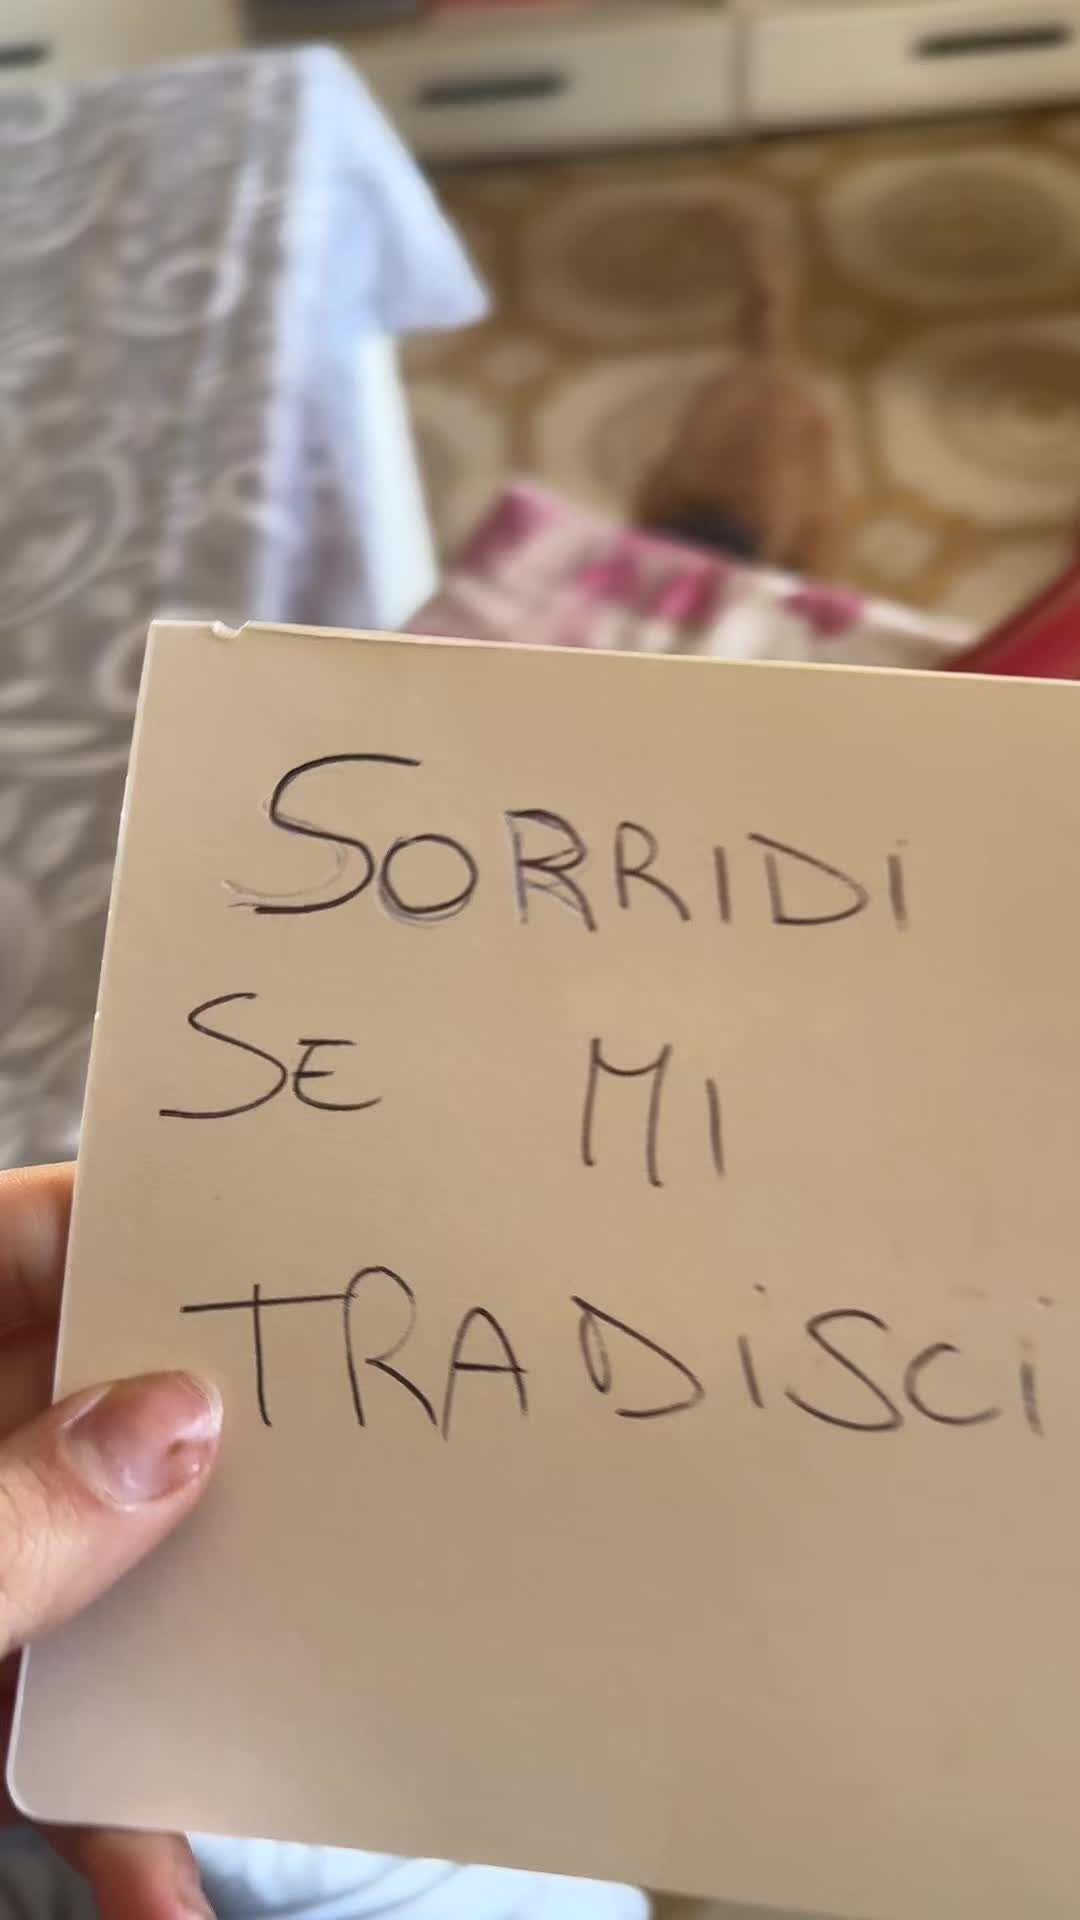 SORRIDI
SE MI
TRADiSCi